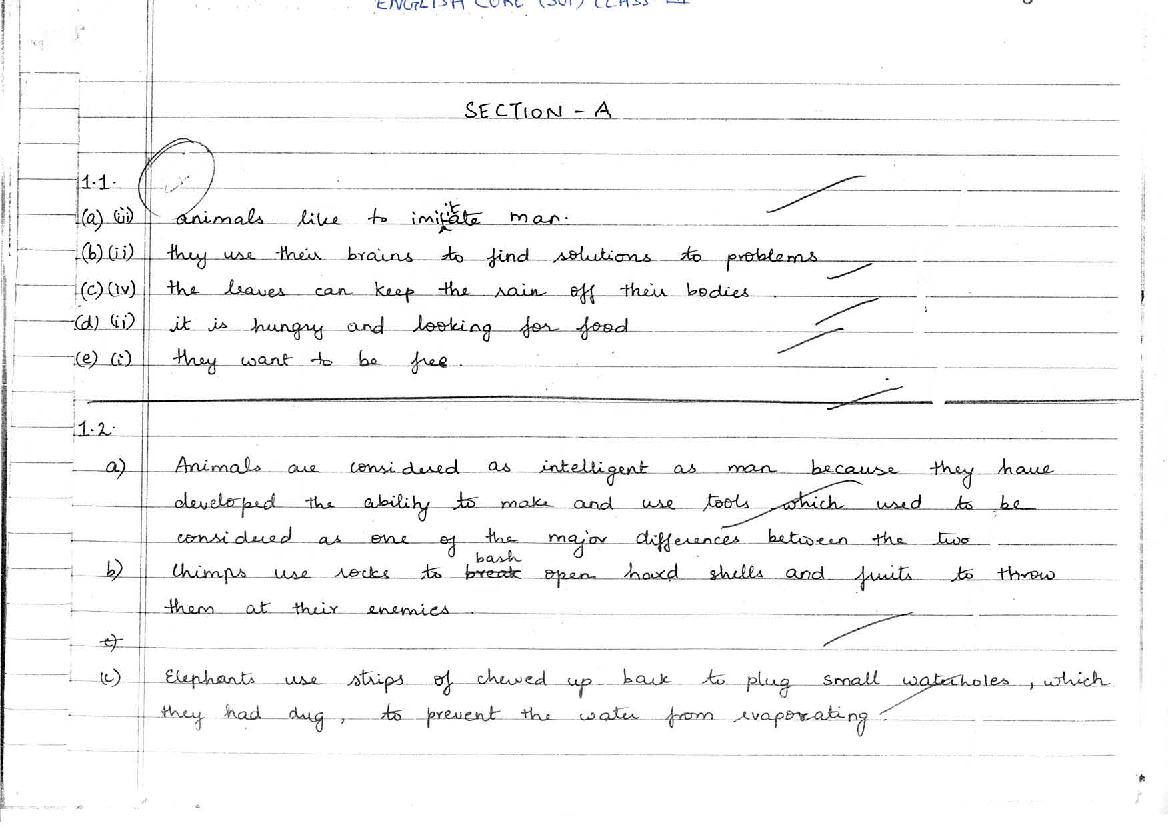 ENGLISH CORE (301) CLASS
SECTION - A
1.1.
(a) (iii) animals like to imitate man.
(b) (ii) they use their brains to find solutions to problems
(c) (iv) the leaves can keep the rain off their bodies.
(d) (ii) it is hungry and looking for food
(e) (i) they want to be free.
1.2.
a) Animals are considered as intelligent as man because they have
developed the ability to make and use tools which used to be
considered as one of the major differences between the two
bash
b) Chimps use rocks to break open hard shells and fruits to throw
them at their enemies.
c)
(c) Elephants use strips of chewed up bark to plug small waterholes, which
they had dug, to prevent the water from evaporating.